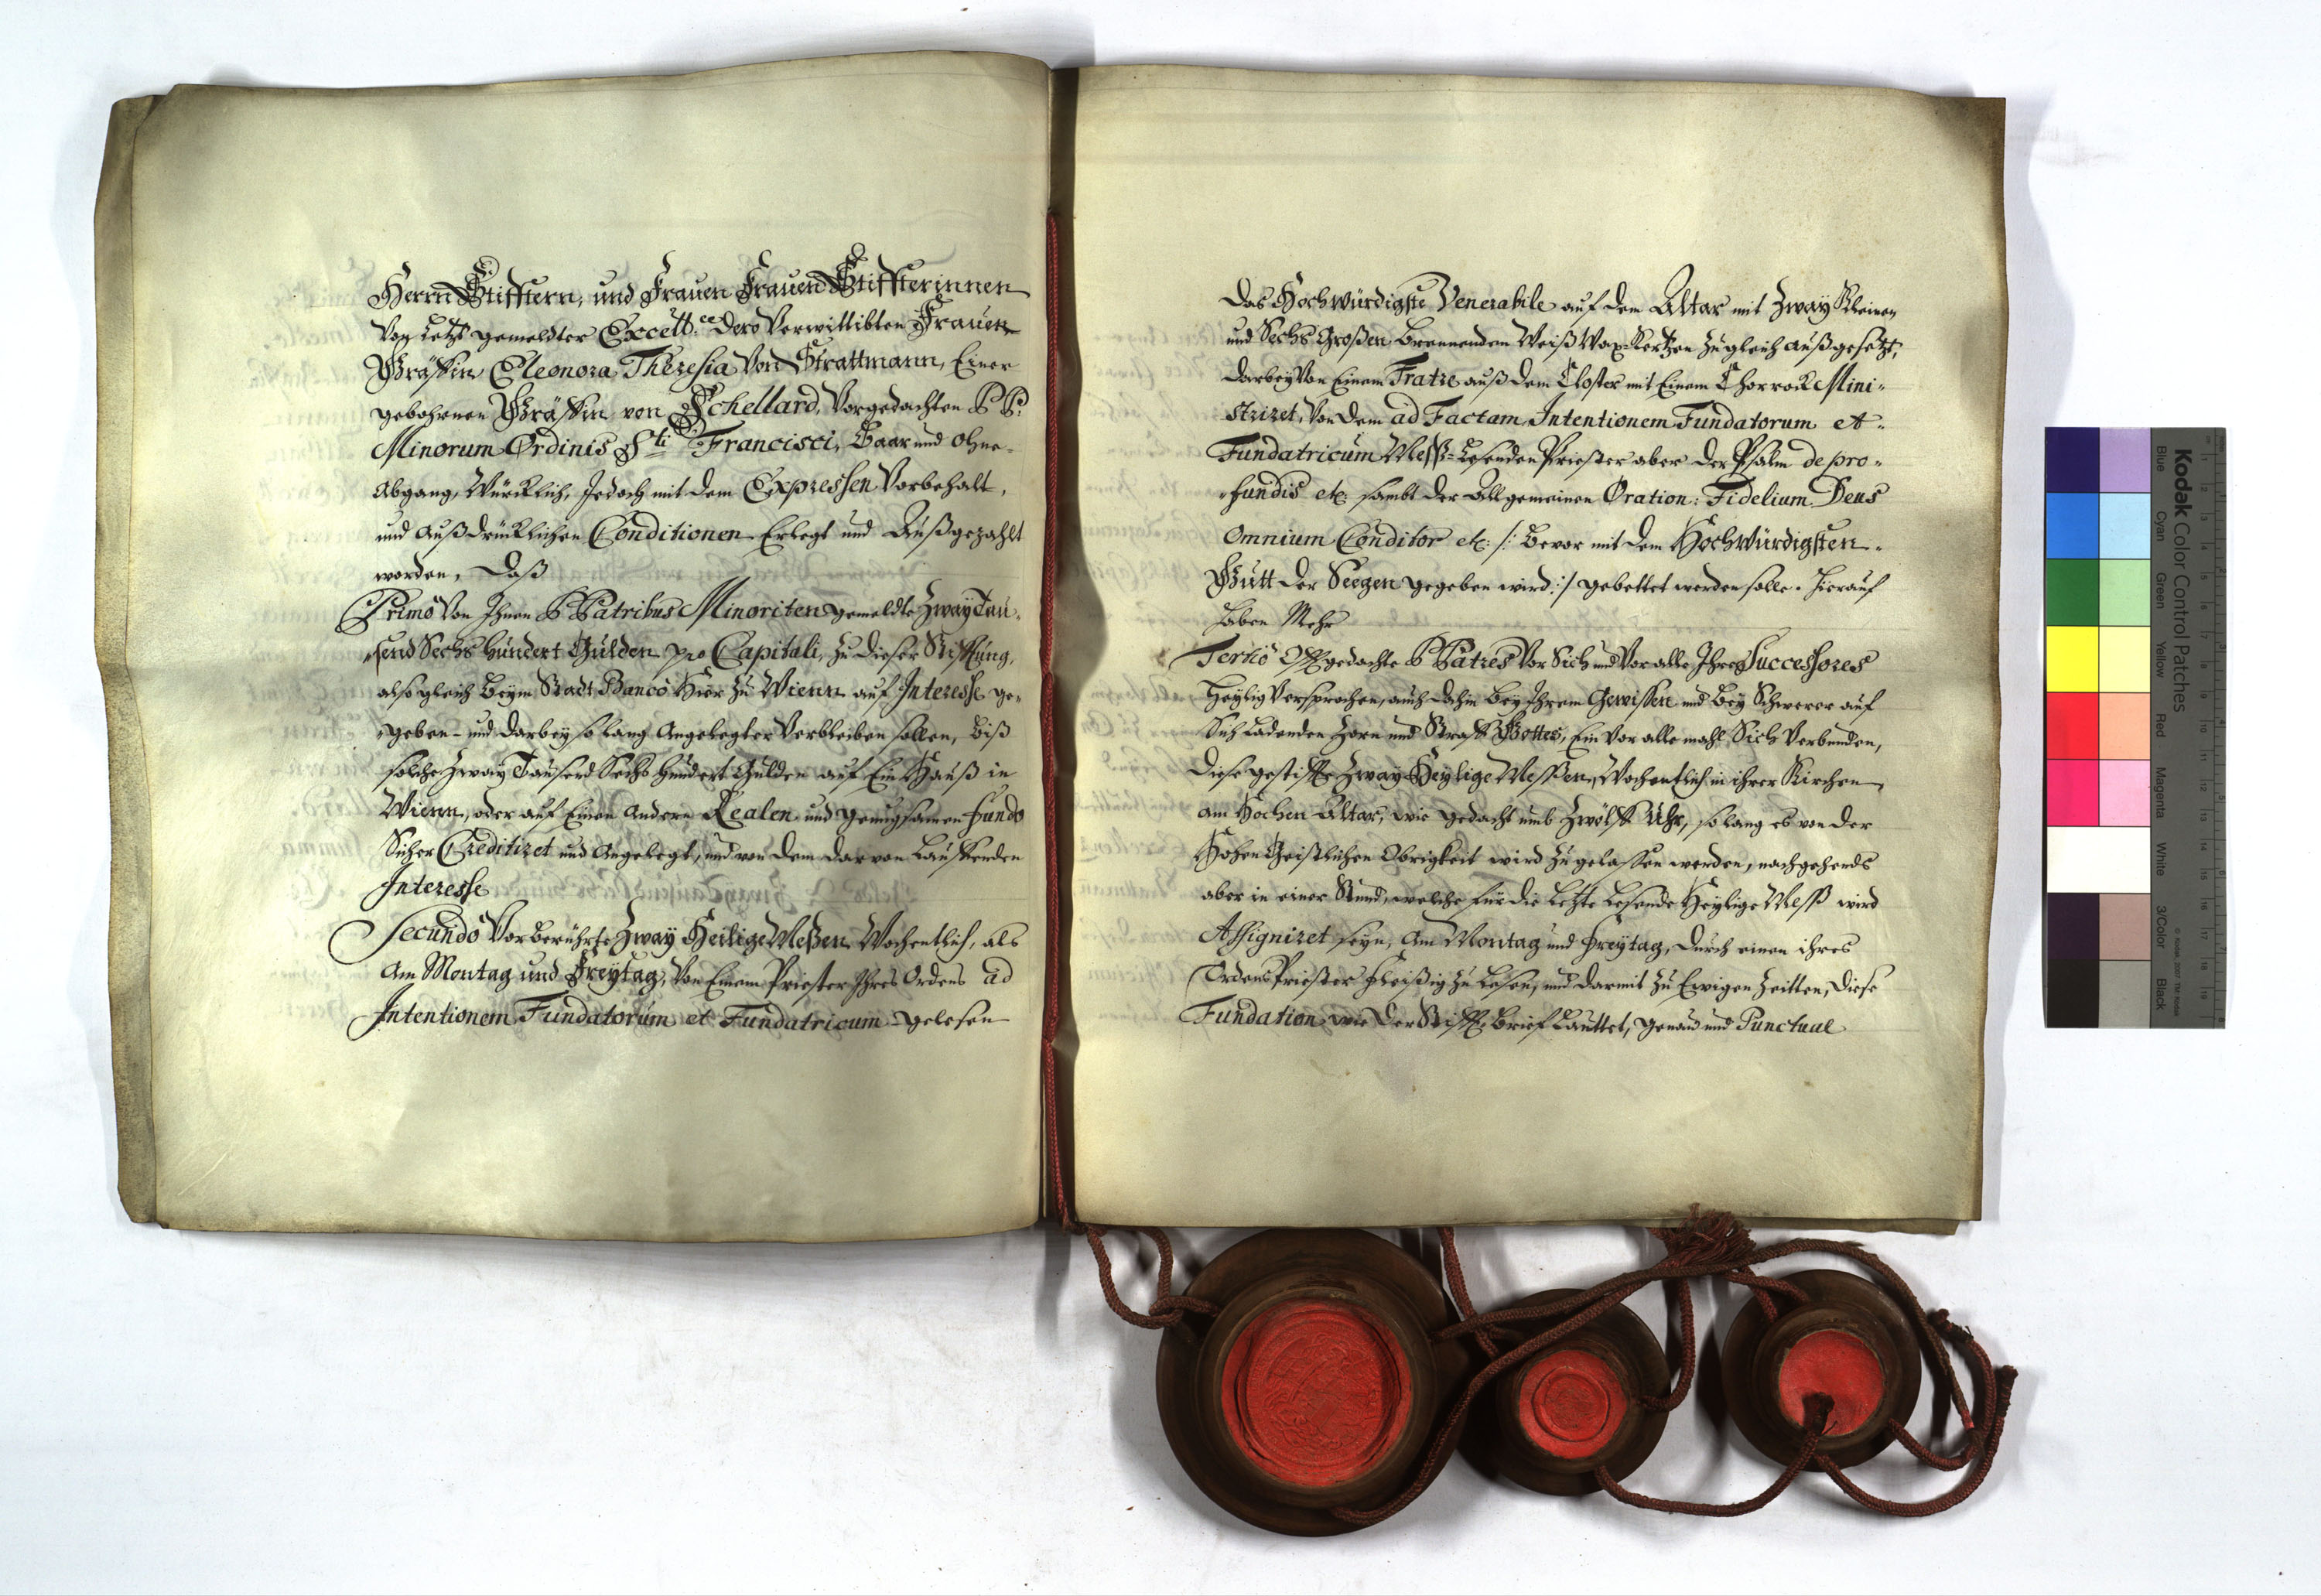 Herrn Stifftern, und Frauen Frauen Stiffterinnen
Von Letzt gemeldter Excell:ce dero Verwittibten Frauen
Gräffin Eleonora Theresia Von Strattmann, Einer
gebohrnen Gräffin von Schellard, Vorgedachten P P:
Minorum Ordinis S:ti Francisci, Baar und ohne
Abgang, Würcklich, Jedoch mit dem Expressen Vorbehalt,
und Außdrücklichen Conditionen Erlegt und Außgezahlt
worden, Daß
Primò Von Ihnen P Patribus Minoriten gemeldte Zway Tau-
send Sechs hundert Gulden pro Capitali, zu dieser Stifftung,
also gleich beym Stadt Banco Hier zu Wienn auf Interesse ge-
geben- und darbey so lang Angelegter Verbleiben sollen, biß
solche Zway Tausend Sechs hundert Gulden auf Ein Hauß in
Wienn, oder auf Einen Andern Realen und genugsamen fundo
Sicher Creditiret und Angelegt, und von dem darvon Lauffenden
Interesse
Secundò Vorberührte Zway Heilige Meßen Wochentlich, als
Am Montag und Freytag, Von Einem Priester Ihres Ordens ad
Intentionem Fundatorum et Fundatricum gelesen
Das Hochwürdigste Venerabile auf dem Altar mit Zway Kleinen
und Sechs Großen Brennenden Weiß Wax-Kertzen zugleich außgesetzt,
darbey Von Einem Fratre auß dem Closter mit Einem Chorrok Mini-
striret, Von dem ad Factam Intentionem Fundatorum et
Fundatricum Meß-Lesenden Priester aber der Psalm de pro-
fundis etc: sambt der Allgemeinen Oration: Fidelium Deus
Omnium Conditor etc: /: bevor mit dem Hochwürdigsten
Gutt der Seegen gegeben wird :/ gebettet werden solle. Hierauf
haben Mehr
Tertiò Offtgedachte P Patres Vor Sich und Vor alle Ihre Successores
Heylig Versprochen, auch dahin bey Ihrem Gewissen und bey Schwerer auf
Sich ladenden Zorn und Straff Gottes, Ein Vor alle mahl Sich Verbunden,
diese gestiffte Zway Heylige Messen, Wochentlich in ihrer Kirchen
am Hochen Altar, wie gedacht umb Zwölff Uhr, so lang es von der
Hohen Geistlichen Obrigkeit wird zugelassen werden, nachgehends
aber in einer Stund, welche für die Letzte Lesende Heylige Mess wird
Assigniret seyn, Am Montag und Freytag, durch einen ihres
Ordens Priester fleißig zu Lesen, und darmit zu Ewigen Zeitten, diese
Fundation wie der Stifft-brief Lauttet, genau und Punctual
Kodak Color Control Patches
Blue
Cyan
Green
Yellow
Red
Magenta
White
3/Color
Black